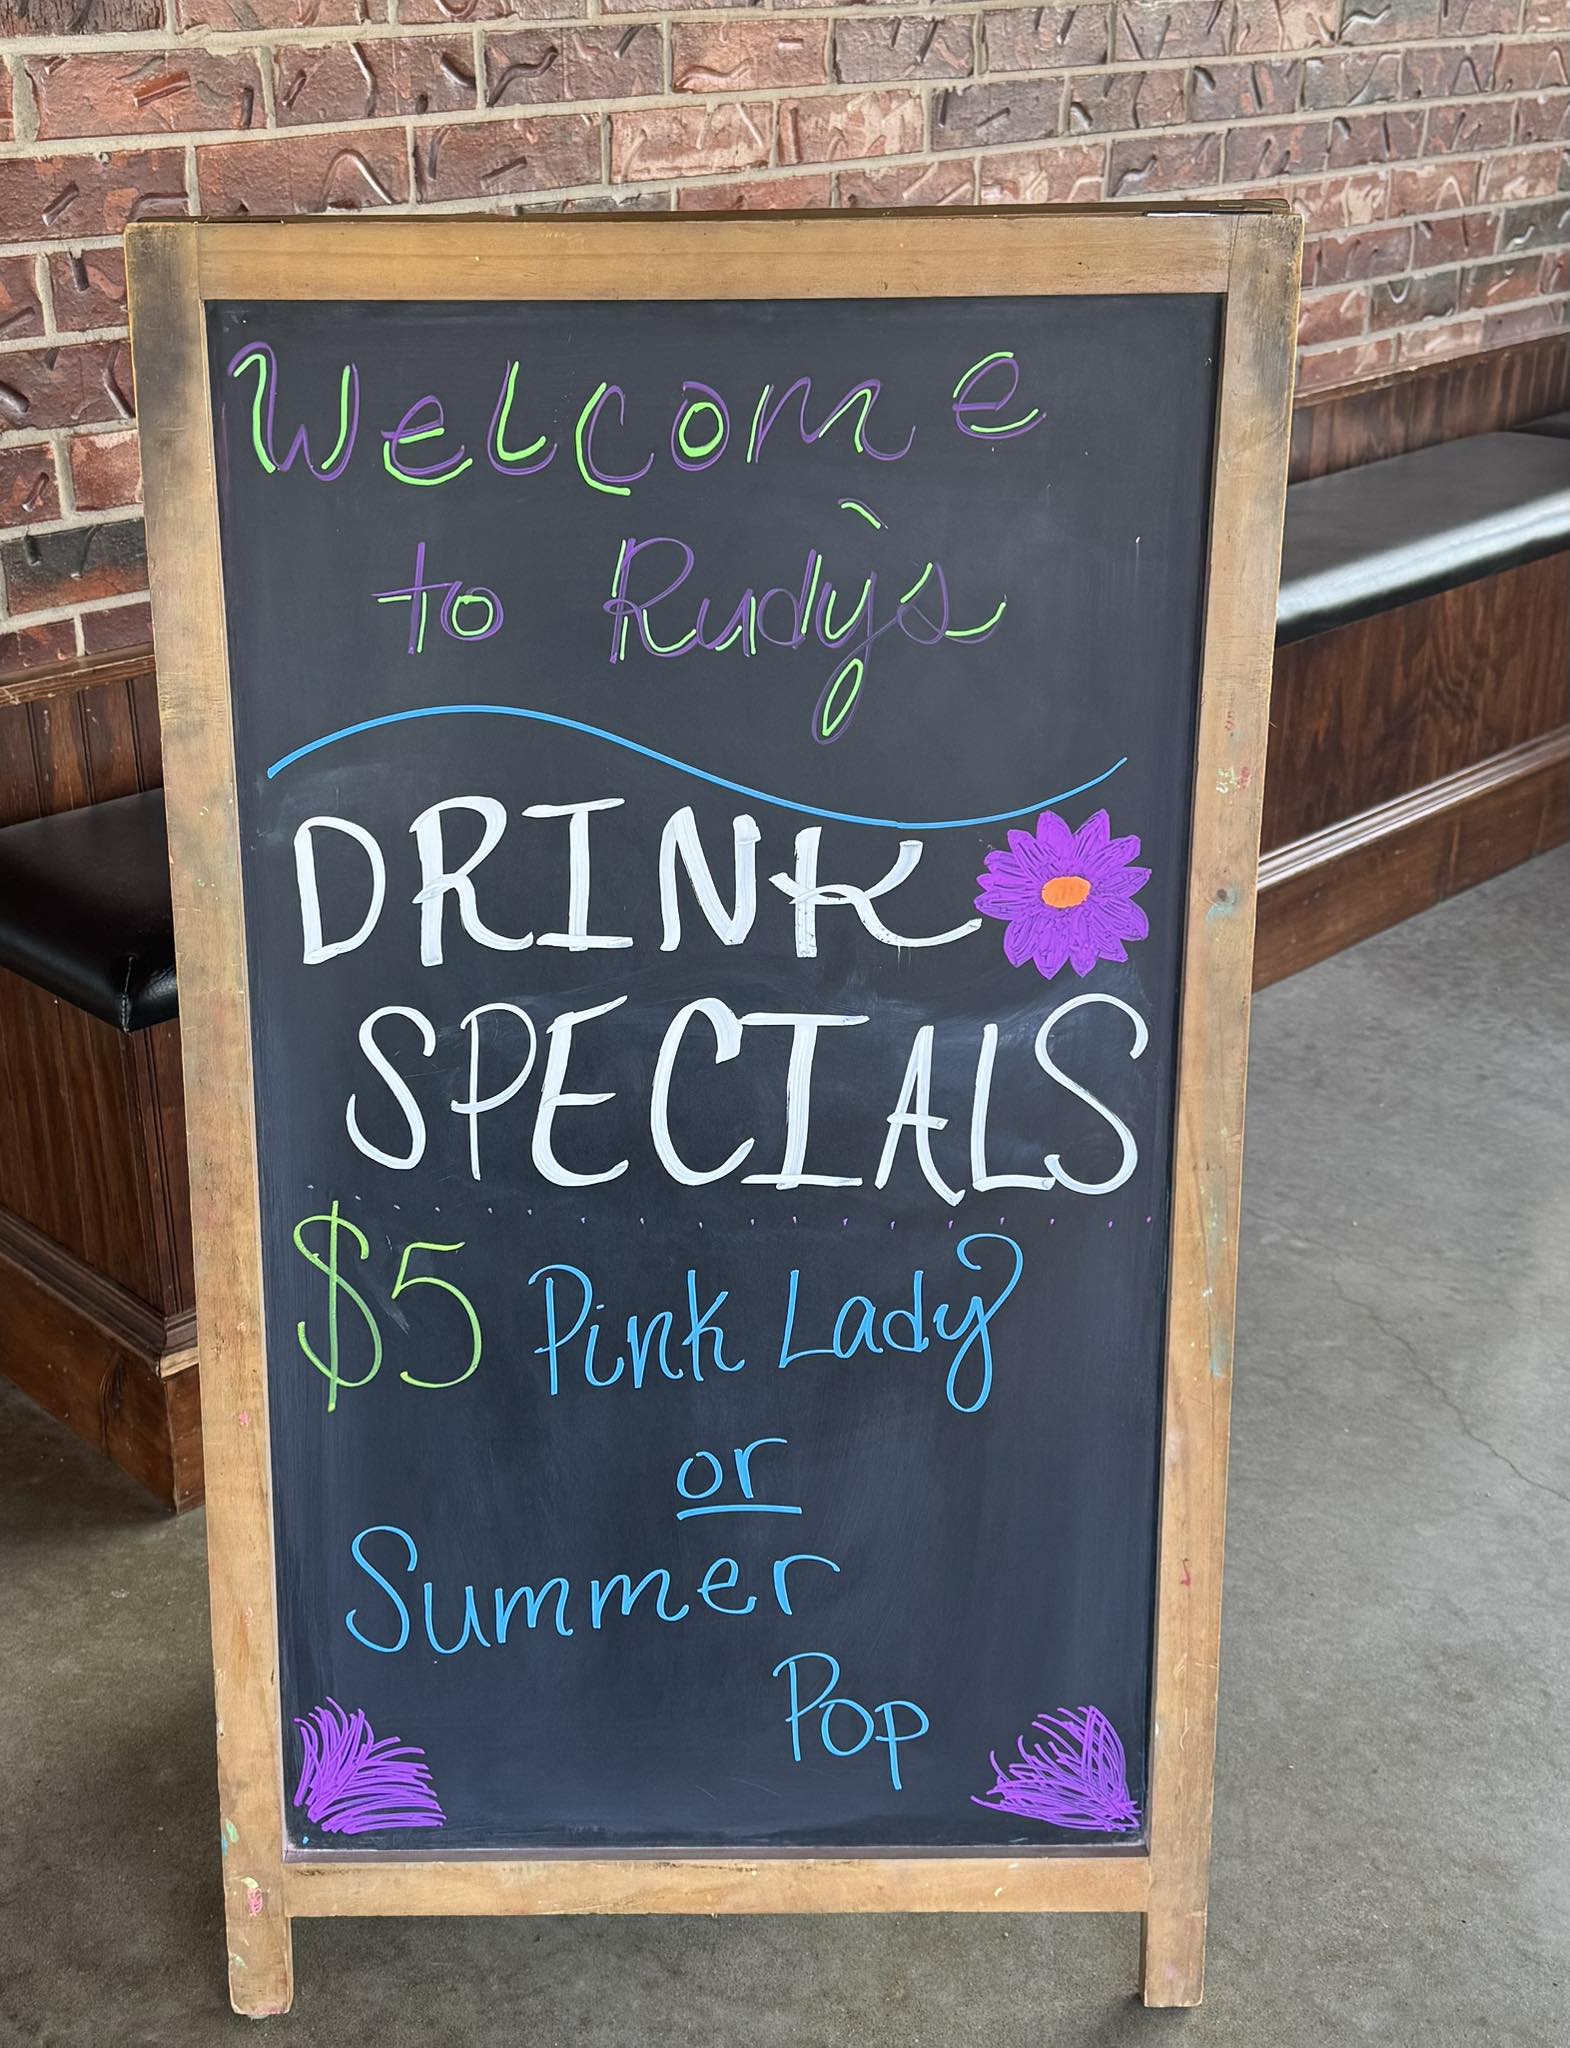 Welcome
to Rudy's
DRINK
SPECIALS
$5 Pink Lady
or
Summer
Pop